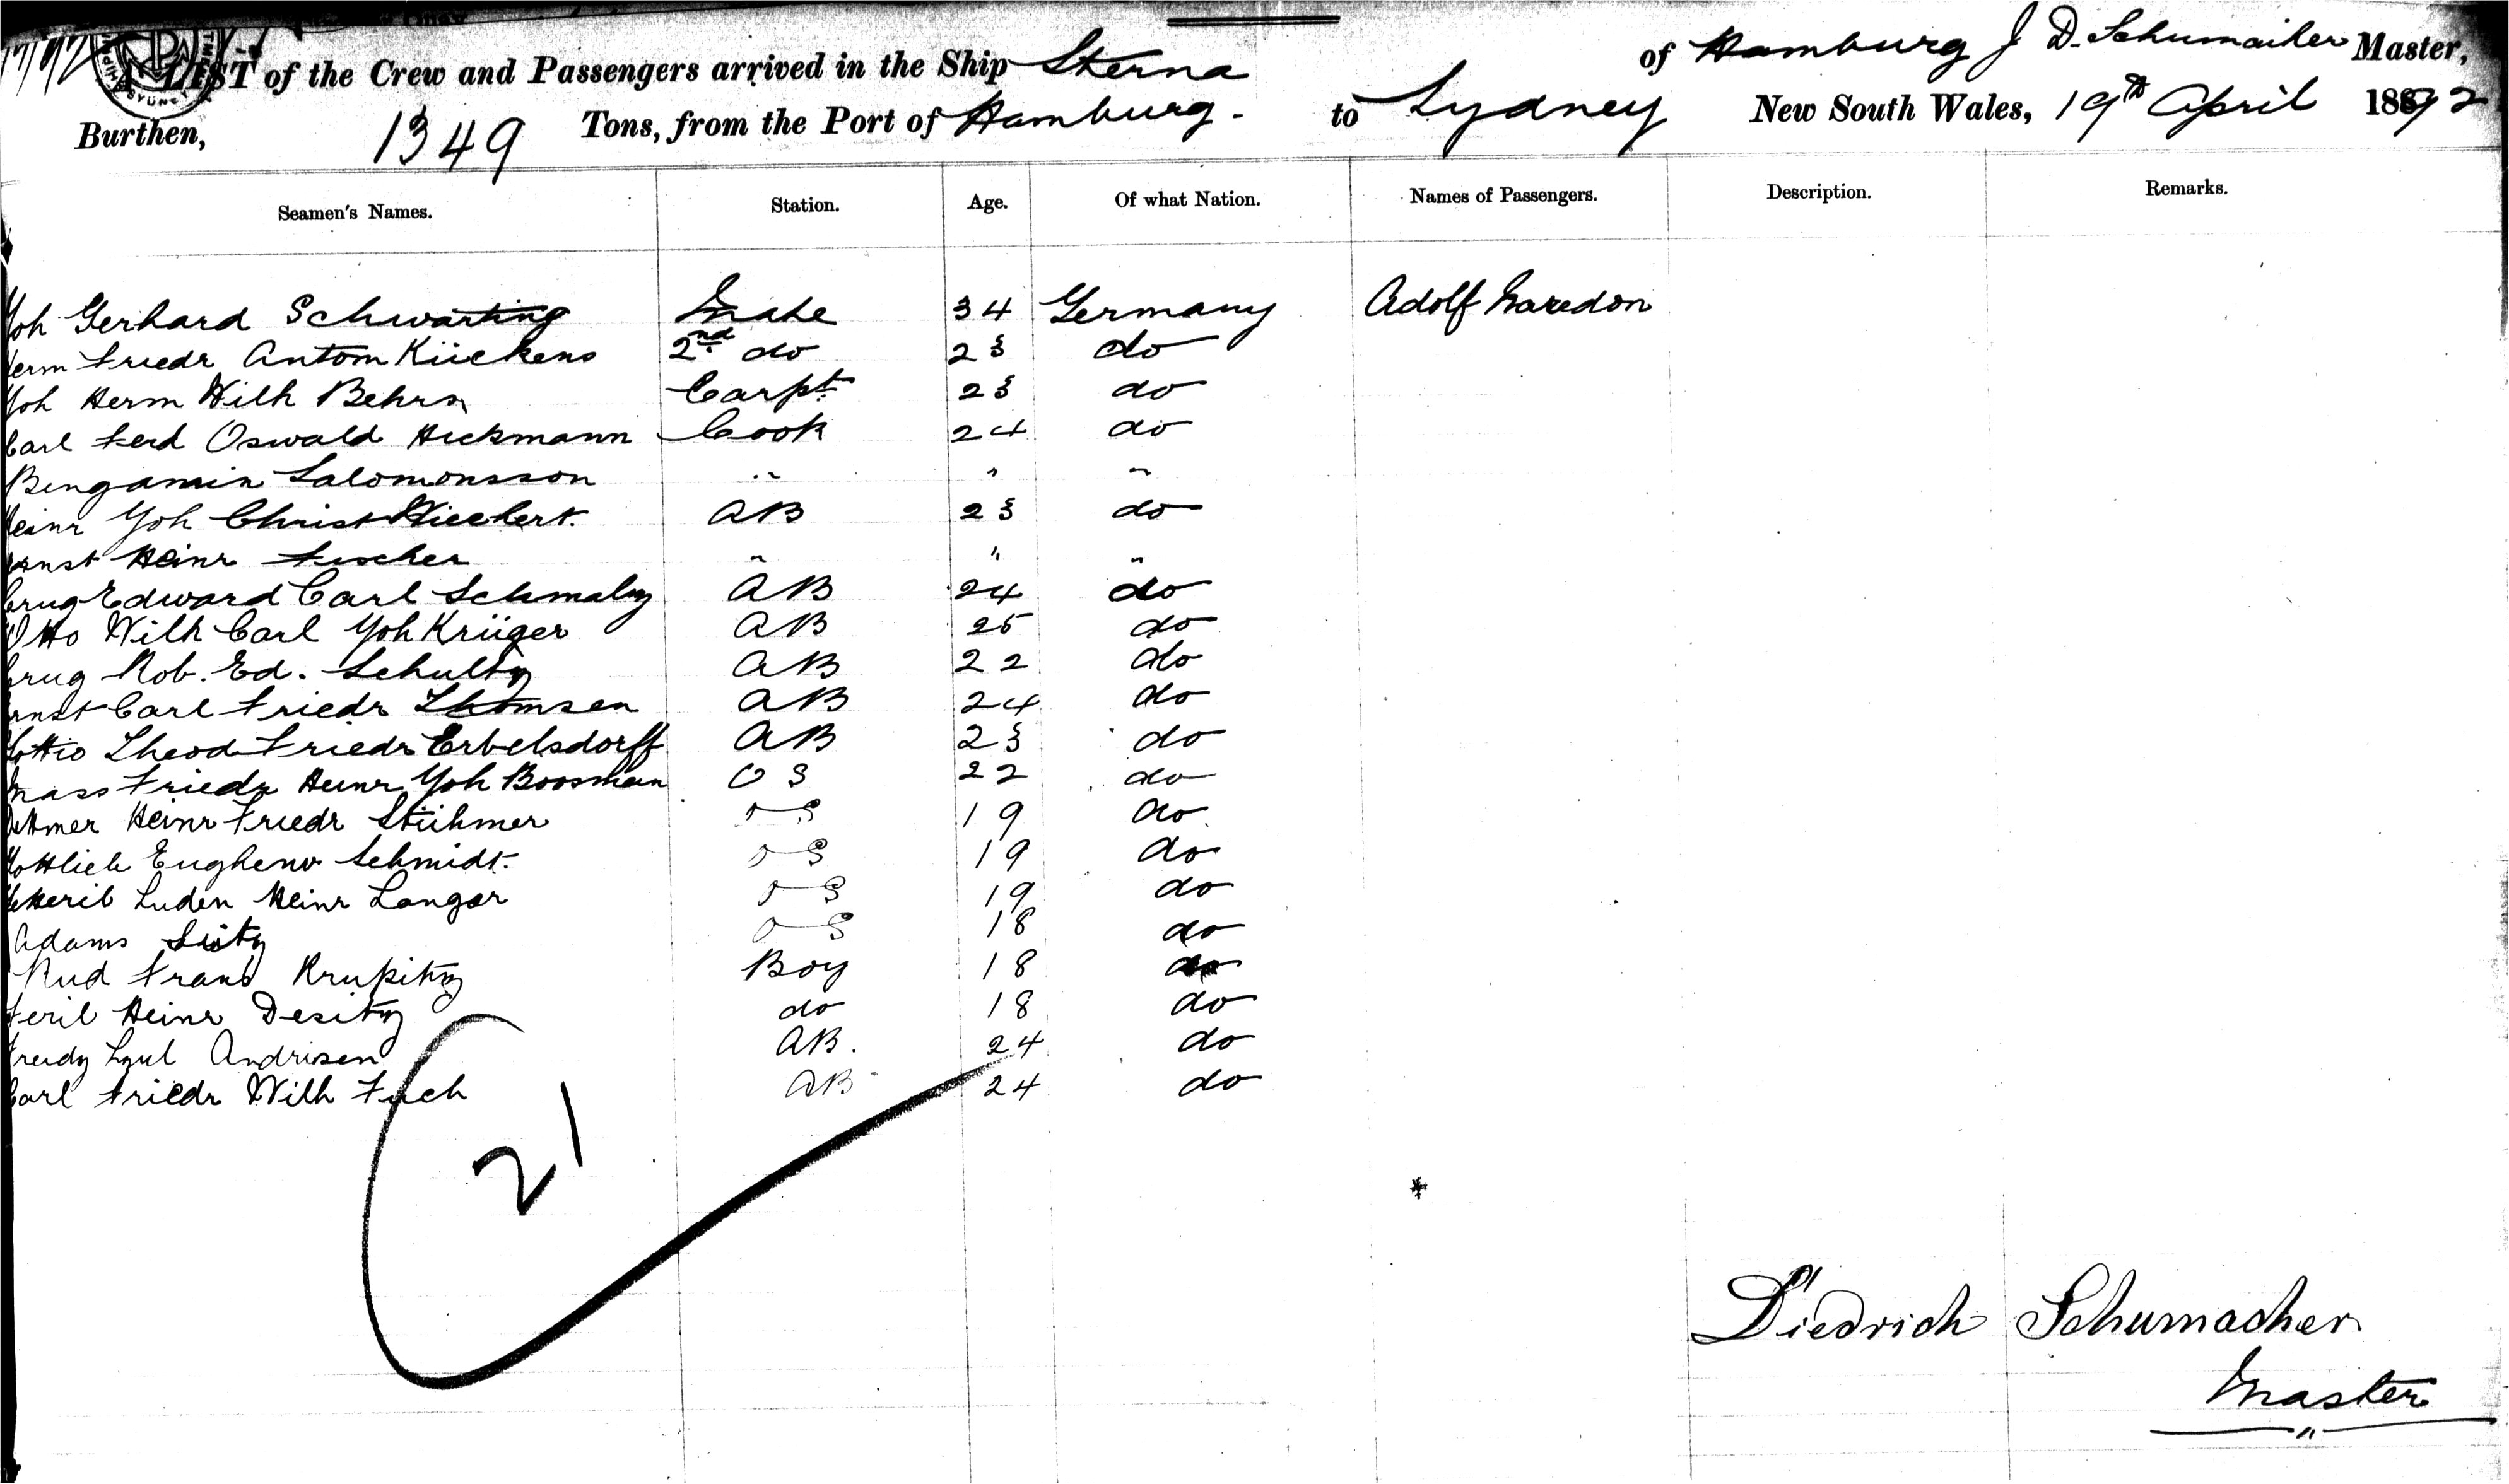 A LIST of the Crew and Passengers arrived in the Ship Sterna of Hamburg J D. Schumacher Master,
Burthen, 1349 Tons, from the Port of Hamburg - to Sydney New South Wales, 19th April 1892
Seamen's Names. Station. Age. Of what Nation. Names of Passengers. Description. Remarks.
Joh Gerhard Schwarting Mate 34 Germany Adolf
Herm Friedr Antom Kückens 2nd do 23 do
Joh Herm Wilh Behrs Carpt 23 do
Carl Ferd Oswald Hickmann Cook 24 do
Bengamin Salomonsson " " "
Heinr Joh Christ Wiechert. AB 23 do
Ernst Heinr Fischer " " "
Edward Carl Schmalz AB 24 do
Otto Wilh Carl Joh Krüger AB 25 do
Rob. Ed. Schultz AB 22 do
Ernst Carl Friedr Thomsen AB 24 do
Theod Friedr Erbelsdorff AB 23 do
Friedr Heinr Joh Boosman OS 22 do
Dettmer Heinr Friedr Stühmer OS 19 do
Gottlieb Eughenv Schmidt. OS 19 do
Luden Heinr Langer OS 19 do
Adams OS 18 do
Rud Frans Krupitz Boy 18 do
Heinr Desitz do 18 do
Andrisen AB. 24 do
Carl Friedr Wilh AB 24 do
21
Diedrich Schumacher
Master